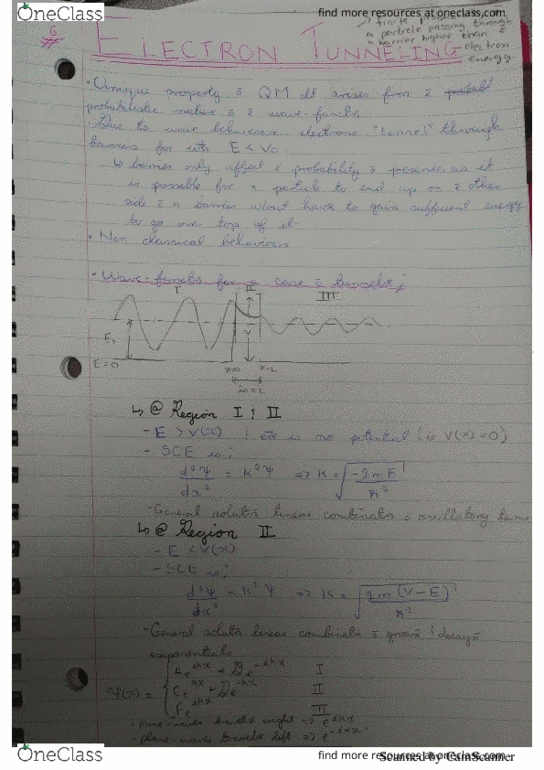 OneClass
find more resources at oneclass.com
finite
a particle passing through
a barrier higher than
electron
energy
6
ELECTRON TUNNELING
• Unique property QM arises from
probabilistic nature wave-functn
• Due to wave behaviour electrons "tunnel" through
barriers for with E < V
↳ barrier only affect probability presence as it
is possible for a particle to end up on other
side a barrier w/out have to gain sufficient energy
to go over top of it
• Non classical behaviour
• Wave-functn for a case
I II III
E
V
E=0 x=0 x=L
2a=L
↳ @ Region I ; II
- E > V(x) is no potential (is V(x)=0)
- SCE is;
d²Ψ/dx² = k²Ψ => K = √(-2mE/ħ²)
- General solutn linear combinatn oscillatory terms
↳ @ Region II
- E < V(x)
- SCE is;
d²Ψ/dx² = K²Ψ => K = √(2m(V-E)/ħ²)
- General solutn linear combinatn grown decayn
exponentials
Ψ(x) = { Ae^ikx + Be^-ikx I
Ce^kx + De^-kx II
Fe^ikx III
• plane-waves travels right => e^ikx
• plane-waves travels left => e^-ikx
OneClass
find more resources at oneclass.com
Scanned by CamScanner